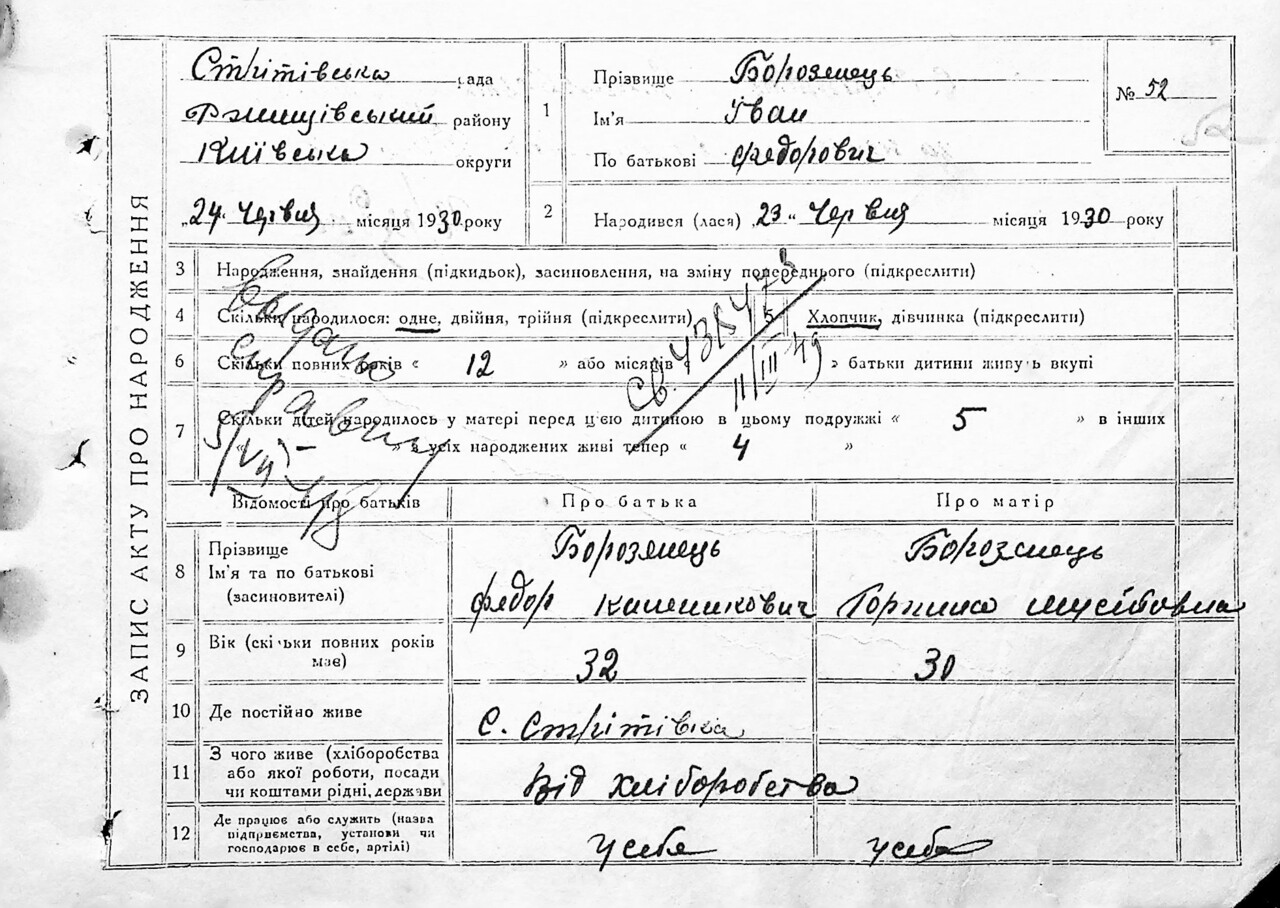 ЗАПИС АКТУ ПРО НАРОДЖЕННЯ
Стрітівська рада
Ржищівський району
Київська округи
„24“ Червня місяця 1930 року
1 Прізвище Бороземець
Ім'я Іван
По батькові Федорович
№ 52
2 Народився (лася) „23“ Червня місяця 1930 року
3 Народження, знайдення (підкидьок), засиновлення, на зміну попереднього (підкреслити)
4 Скільки народилося: одне, двійня, трійня (підкреслити) 5 Хлопчик, дівчинка (підкреслити)
6 Скільки повних років « 12 » або місяців « » батьки дитини живуть вкупі
7 Скільки дітей народилось у матері перед цією дитиною в цьому подружжі « 5 » в інших
« » з усіх народжених живі тепер « 4 »
5/VII-48
Св. 4
11/III 49
Відомості про батьків Про батька Про матір
8 Прізвище Бороземець Бороземець
Ім'я та по батькові
(засиновителі) Федор Каленикович Горпина Мусіївна
9 Вік (скільки повних років
має) 32 30
10 Де постійно живе С. Стрітівка
11 З чого живе (хліборобства
або якої роботи, посади
чи коштами рідні, держави Від хліборобства
12 Де працює або служить (назва
підприємства, установи чи
господарює в себе, артілі) у себе у себе